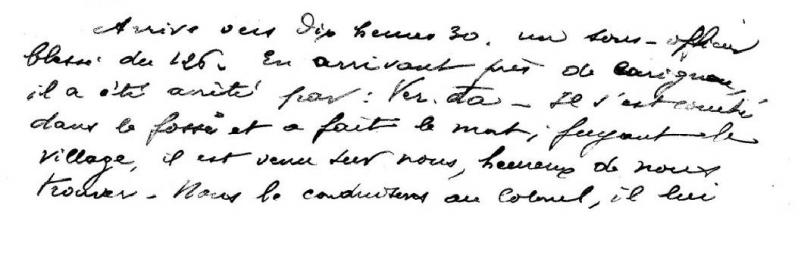 Arrive vers Dix heures 30. un sous-officier
blessé du 126. En arrivant près de Carignan,
il a été arrêté par : Ver. da - Il s'est couché
dans le fossé et a fait le mort ; fuyant le
village, il est venu sur nous, heureux de nous
trouver - Nous le conduisons au Colonel, il lui